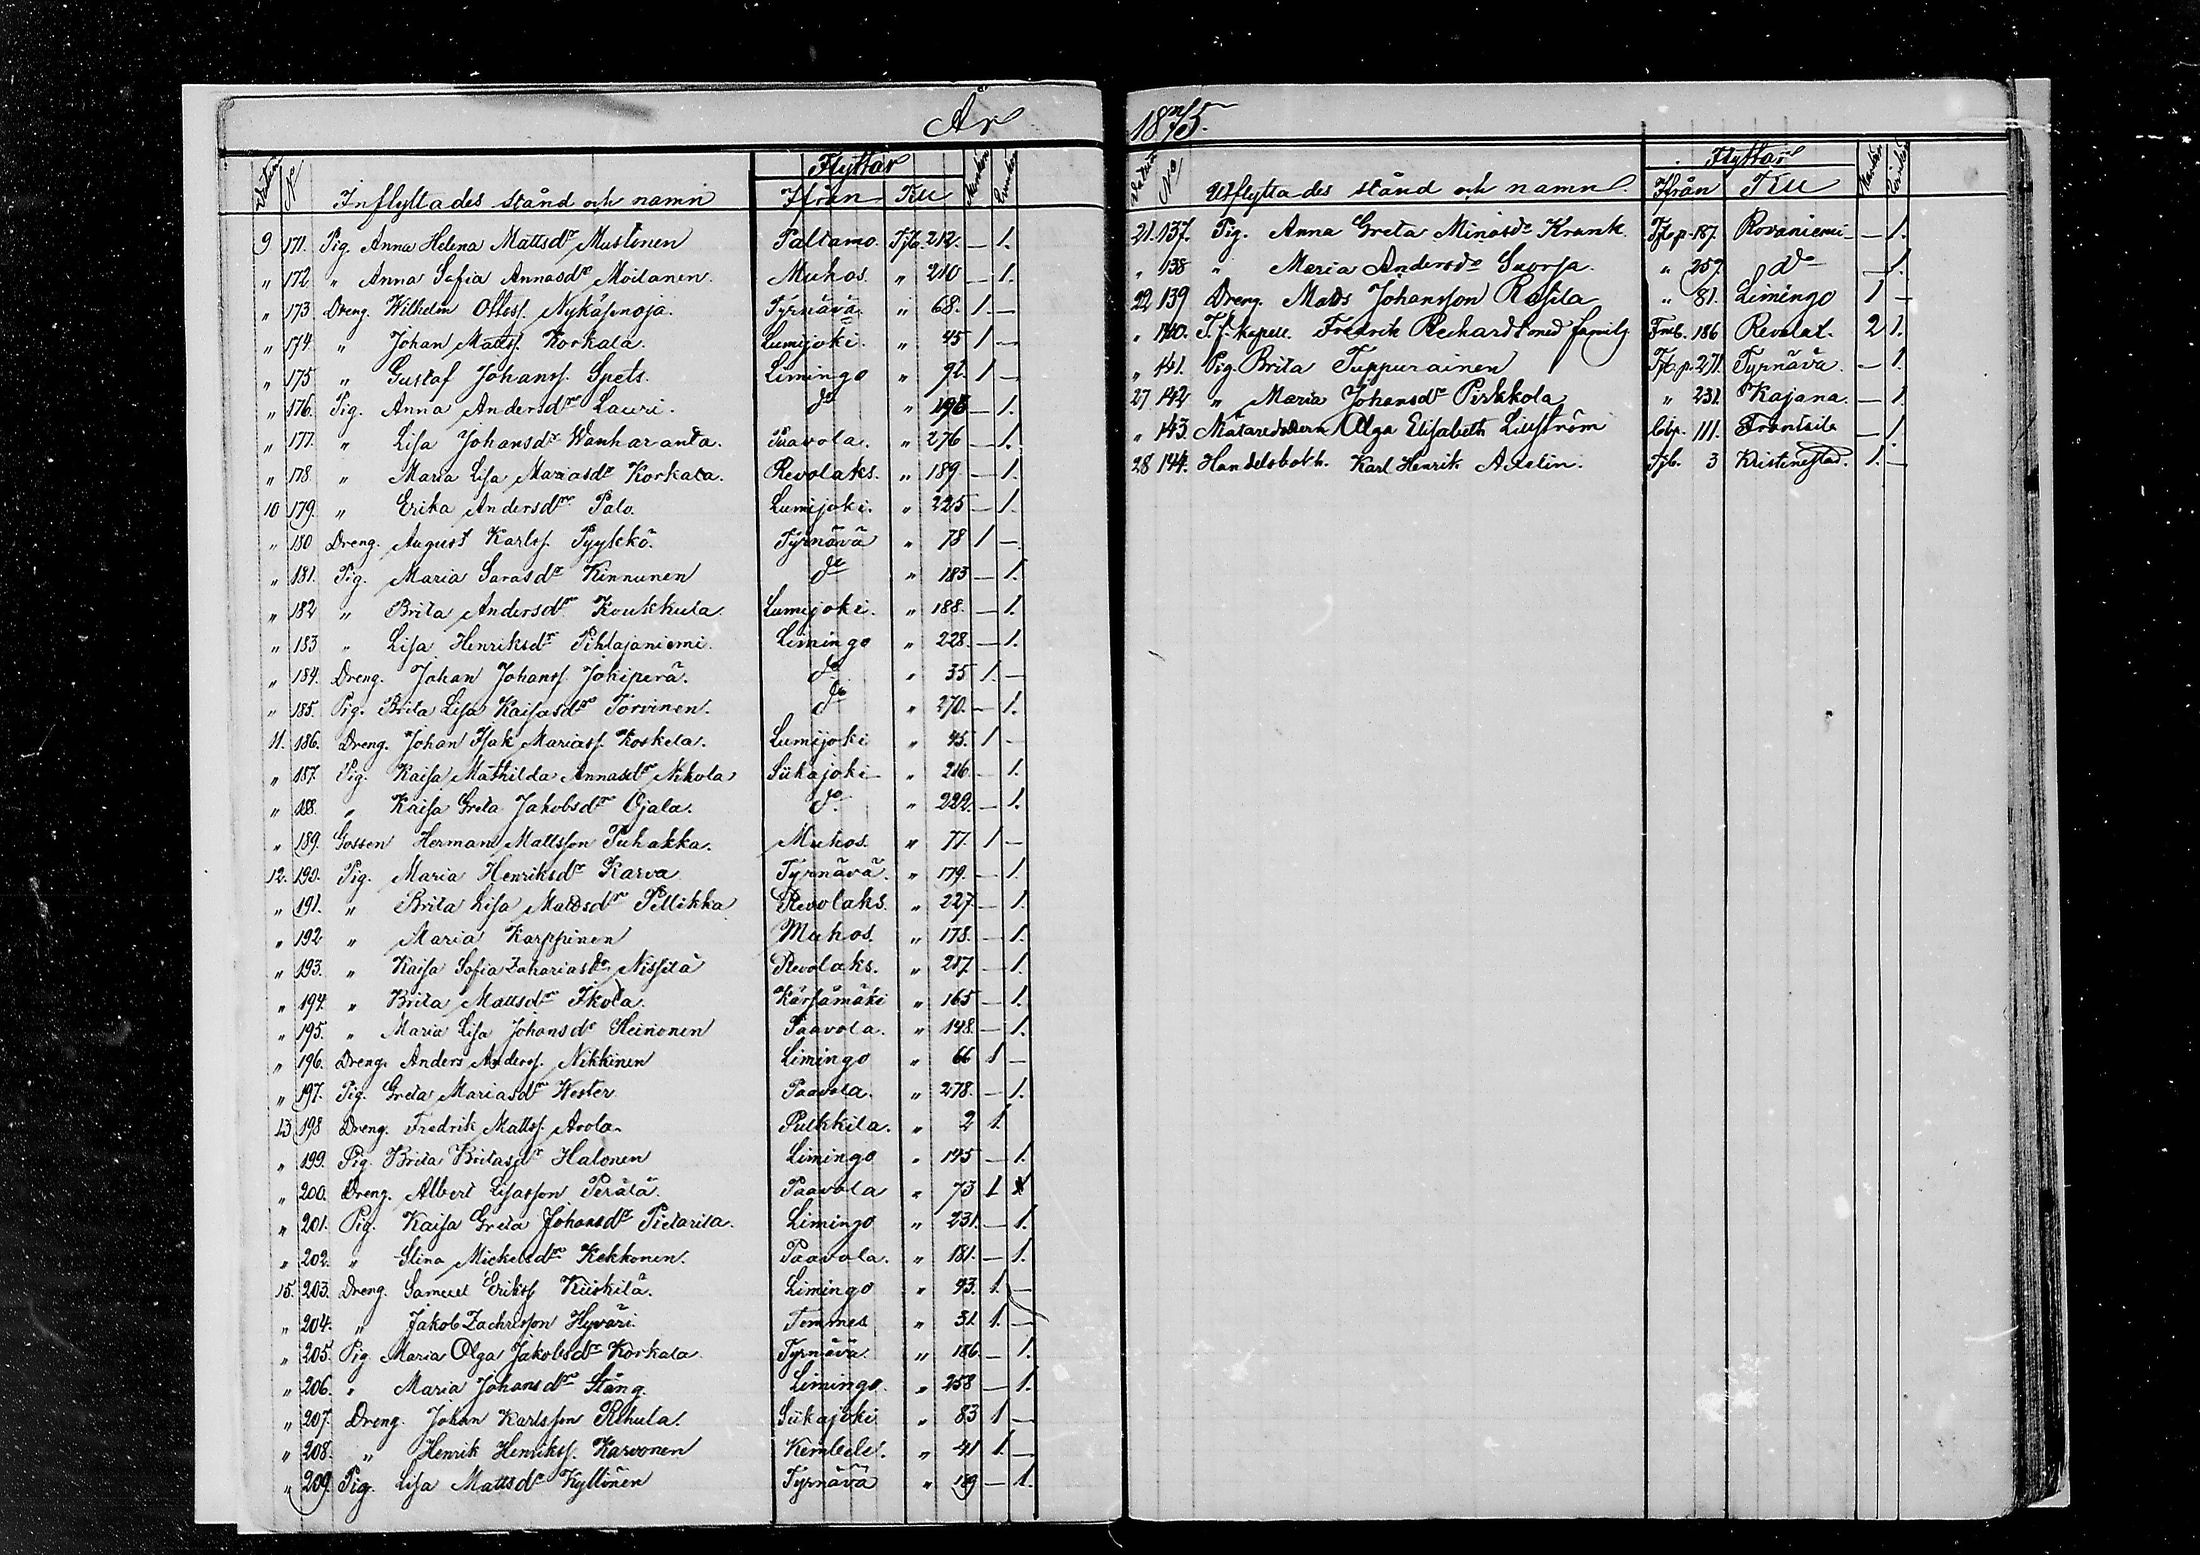 År
Datum No Inflyttades stånd och namn Flyttar Ifrån Till Mankön Qvinkön
9 171. Pig. Anna Helena Mattsdr Mustonen Paltamo Tjb. 212. — 1.
" 172. " Anna Sofia Annasdr Moilanen. Muhos. " 210 — 1.
" 173. Dreng. Wilhelm Ottoss. Nykäsenoja. Tyrnävä. " 68. 1. —
" 174. " Johan Matts. Korkala. Lumijoki. " 45 1 —
" 175 " Gustaf Johanss. Spets. Limingo " 92. 1 —
" 176. Pig. Anna Andersdr Lauri. do " 198 — 1.
" 177. " Lisa Johansdr Wanharanta. Paavola. " 276 — 1.
" 178. " Maria Lisa Mariasdr Korkala. Revolaks. " 189. — 1.
10 179. " Erika Andersdr Palo. Lumijoki. " 225 — 1.
" 180 Dreng. August Karlss. Pyykkö. Tyrnävä " 78 1 —
" 181. Pig. Maria Sarasdr Kinnunen do " 183 — 1.
" 182 " Brita Andersdr Koukkula. Lumijoki. " 188. — 1.
" 183 " Lisa Henriksdr Pihlajaniemi. Limingo " 228. — 1.
" 184. Dreng. Johan Johanss. Jokiperä. do " 35 1. —
" 185. Pig. Brita Lisa Kaisasdr Törvinen. do " 270. — 1.
11. 186. Dreng. Johan Isak Mariass. Koskela. Lumijoki " 45. 1 —
" 187. Pig. Kaisa Mathilda Annasdr Nikola Siikajoki " 216. — 1.
" 188. " Kaisa Greta Jakobsdr Ojala. do " 222. — 1.
" 189. Gossen Herman Mattsson Puhakka. Muhos. " 77. 1 —
12. 190. Pig. Maria Henriksdr Karva Tyrnävä. " 179. — 1.
" 191. " Brita Lisa Mattsdr Pellikka Revolaks. " 227. — 1.
" 192 " Maria Karppinen Muhos. " 178. — 1.
" 193. " Kaisa Sofia Zahariasdr Nissilä Revolaks. " 217. — 1.
" 194 " Brita Mattsdr Ikola. Kärsämäki " 165 — 1.
" 195. " Maria Lisa Johansdr Heinonen Paavola. " 148. — 1.
" 196. Dreng. Anders Anderss. Nikkinen Limingo " 66 1 —
" 197. Pig. Greta Mariasdr Wester. Paavola. " 278. — 1.
13 198 Dreng. Fredrik Matts. Avola. Pulkkila. " 2 1.
" 199. Pig. Brita Britasdr Halonen Limingo " 195 — 1.
" 200. Dreng. Albert Lisasson Perälä. Paavola " 73 1
" 201. Pig. Kaisa Greta Johansdr Pietarila. Limingo " 231. — 1.
" 202. " Stina Mickelsdr Kekkonen. Paavola. " 181. — 1.
15. 203. Dreng. Samuel Erikss. Kuiskilä. Limingo " 93. 1. —
" 204. " Jakob Zachrisson Hyväri. Temmes " 31 1. —
" 205. Pig. Maria Olga Jakobsdr Korkala Tyrnävä. " 186. — 1.
" 206. " Maria Johansdr Stång Limingo. " 258 — 1.
" 207. Dreng. Johan Karlsson Rehula. Siikajoki " 83 1 —
" 208. " Henrik Henrikss. Karvonen Kembele. " 41 1. —
" 209. Pig. Lisa Mattsdr Kyllönen Tyrnävä " — 1.
1875.
Datum No Utflyttades stånd och namn. Flyttar Ifrån Till Mankön Qvinkön
21. 137. Pig. Anna Greta Minasdr Krank. Tjb. p. 187. Rovaniemi — 1.
" 138 " Maria Andersdr Suorsa. " 257. do — 1.
22 139 Dreng. Mats Johansson Rasila " 81. Limingo 1 —
" 140. T.f. kapell. Fredrik Rechardt med familj Fmb. 186 Revolax. 2 1.
" 141. Pig. Brita Tuppurainen Tjb. p. 271. Tyrnävä. — 1
27 142 " Maria Johansdr Pirkkola " 231. Kajana. — 1.
" 143. Olga Elisabeth Lillström 111. Frantsila — 1.
28 144. Handelsbokh. Karl Henrik Axelin. Tjb. 3 Kristinestad. 1. —